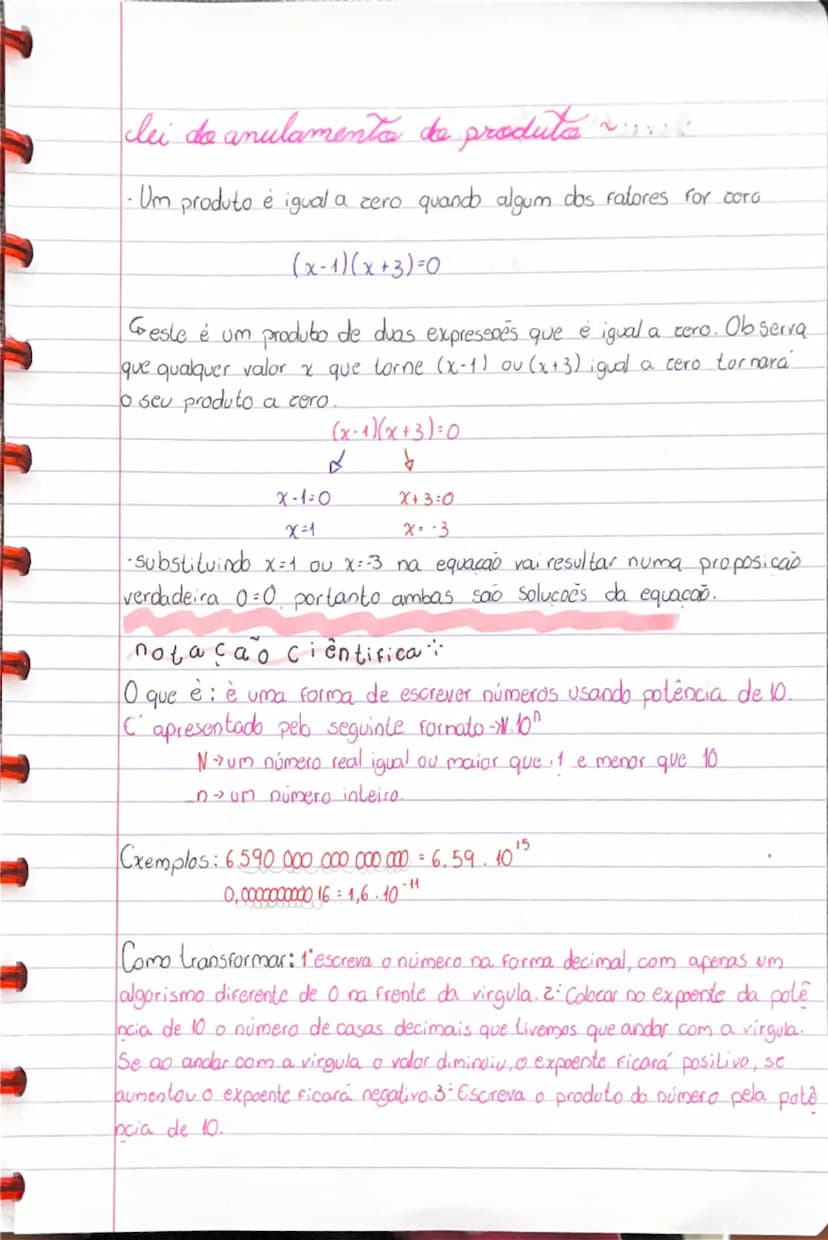 Lei do anulamento do produto ~
· Um produto é igual a zero quando algum dos fatores for zero
(x-1)(x+3)=0
↳ este é um produto de duas expressoês que é igual a zero. Observa
que qualquer valor x que torne (x-1) ou (x+3) igual a zero tornará
o seu produto a zero.
(x-1)(x+3)=0
↙ ↓
x-1=0 x+3=0
x=1 x=-3
·substituindo x=1 ou x=-3 na equação vai resultar numa proposição
verdadeira 0=0, portanto ambas são soluçoẽs da equação.
notação ciêntifica
O que é: é uma forma de escrever números usando potência de 10.
É apresentado pelo seguinte formato→N.10ⁿ
N→um número real igual ou maior que 1 e menor que 10
n→um número inteiro.
Exemplos: 6 590 000 000 000 000 = 6,59 . 10¹⁵
0,00000000016 = 1,6 . 10⁻¹¹
Como transformar: 1º escreva o número na forma decimal, com apenas um
algorismo diferente de 0 na frente da virgula. 2º Colocar no expoente da potê
ncia de 10 o número de casas decimais que tivemos que andar com a vírgula.
Se ao andar com a virgula o valor diminoiu, o expoente ficará positivo, se
aumentou o expoente ficará negativo. 3º Escreva o produto do número pela potê
ncia de 10.